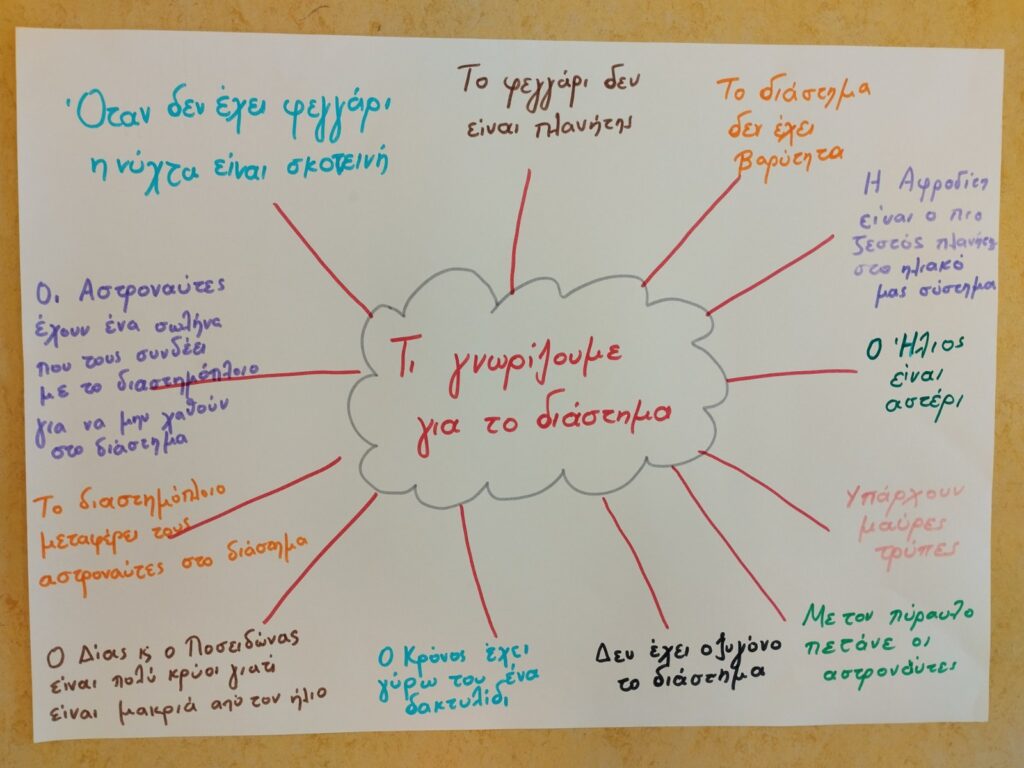 Τι γνωρίζουμε
για το διάστημα
Όταν δεν έχει φεγγάρι
η νύχτα είναι σκοτεινή
Το φεγγάρι δεν
είναι πλανήτης
Το διάστημα
δεν έχει
βαρύτητα
Η Αφροδίτη
είναι ο πιο
ζεστός πλανήτης
στο ηλιακό
μας σύστημα
Ο Ήλιος
είναι
αστέρι
Υπάρχουν
μαύρες
τρύπες
Με τον πύραυλο
πετάνε οι
αστροναύτες
Δεν έχει οξυγόνο
το διάστημα
Ο Κρόνος έχει
γύρω του ένα
δακτυλίδι
Ο Δίας κ ο Ποσειδώνας
είναι πολύ κρύοι γιατί
είναι μακριά από τον ήλιο
Το διαστημόπλοιο
μεταφέρει τους
αστροναύτες στο διάστημα
Οι Αστροναύτες
έχουν ένα σωλήνα
που τους συνδέει
με το διαστημόπλοιο
για να μην χαθούν
στο διάστημα